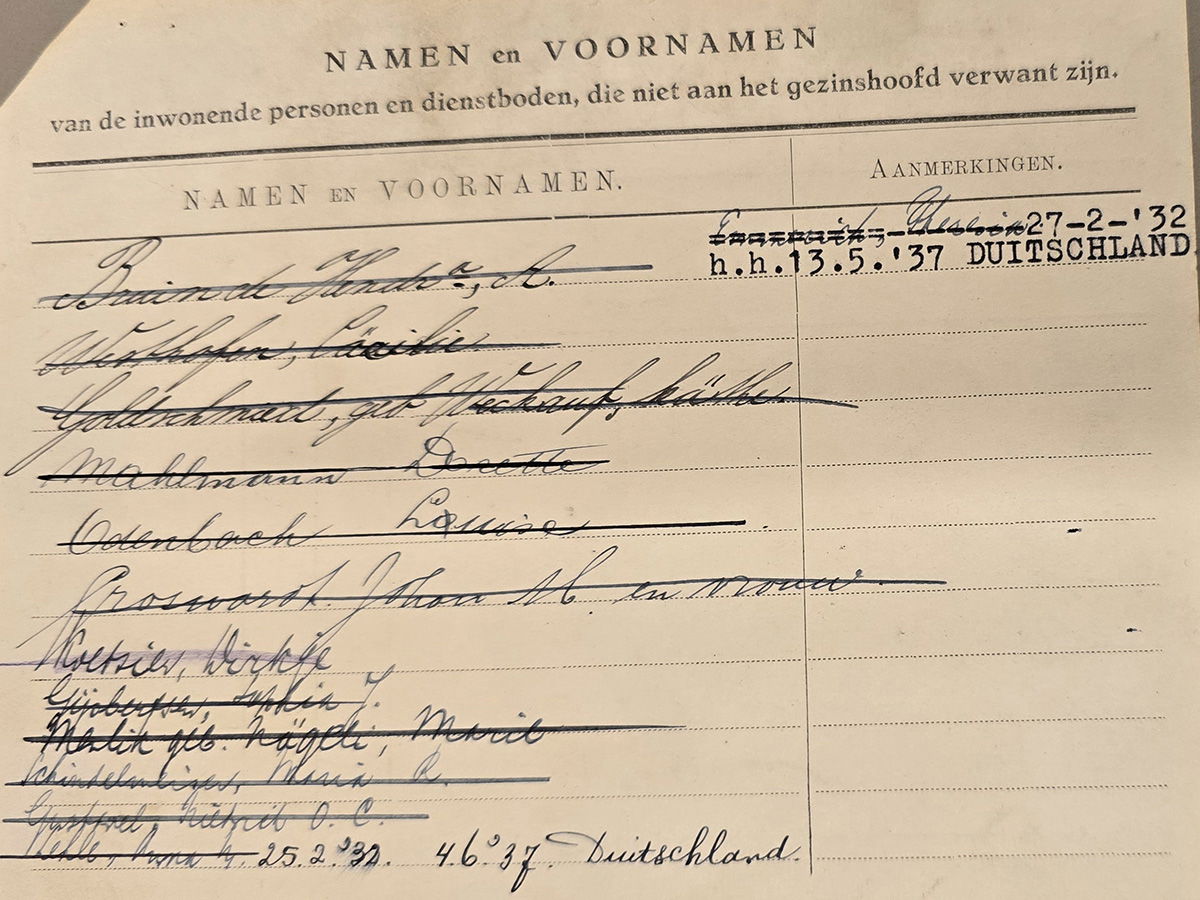 NAMEN en VOORNAMEN
van de inwonende personen en dienstboden, die niet aan het gezinshoofd verwant zijn.
NAMEN EN VOORNAMEN.
AANMERKINGEN.
Theresia 27-2-'32
h.h.13.5.'37 DUITSCHLAND
Bruin de Hendr^a, A.
Westhofen, Cäcilie
Goldschmidt, geb Weckauf, Käthe
Mahlmann Dorette
Odenbach Louise
Groswardt. Johan M. en vrouw
Koetsier, Dirkje
Gijsbertsen, Sophia J.
Merlin geb. Nägeli, Marie
Maria R.
O. C.
Anna 25.2.'32. 4.6.'37. Duitschland.